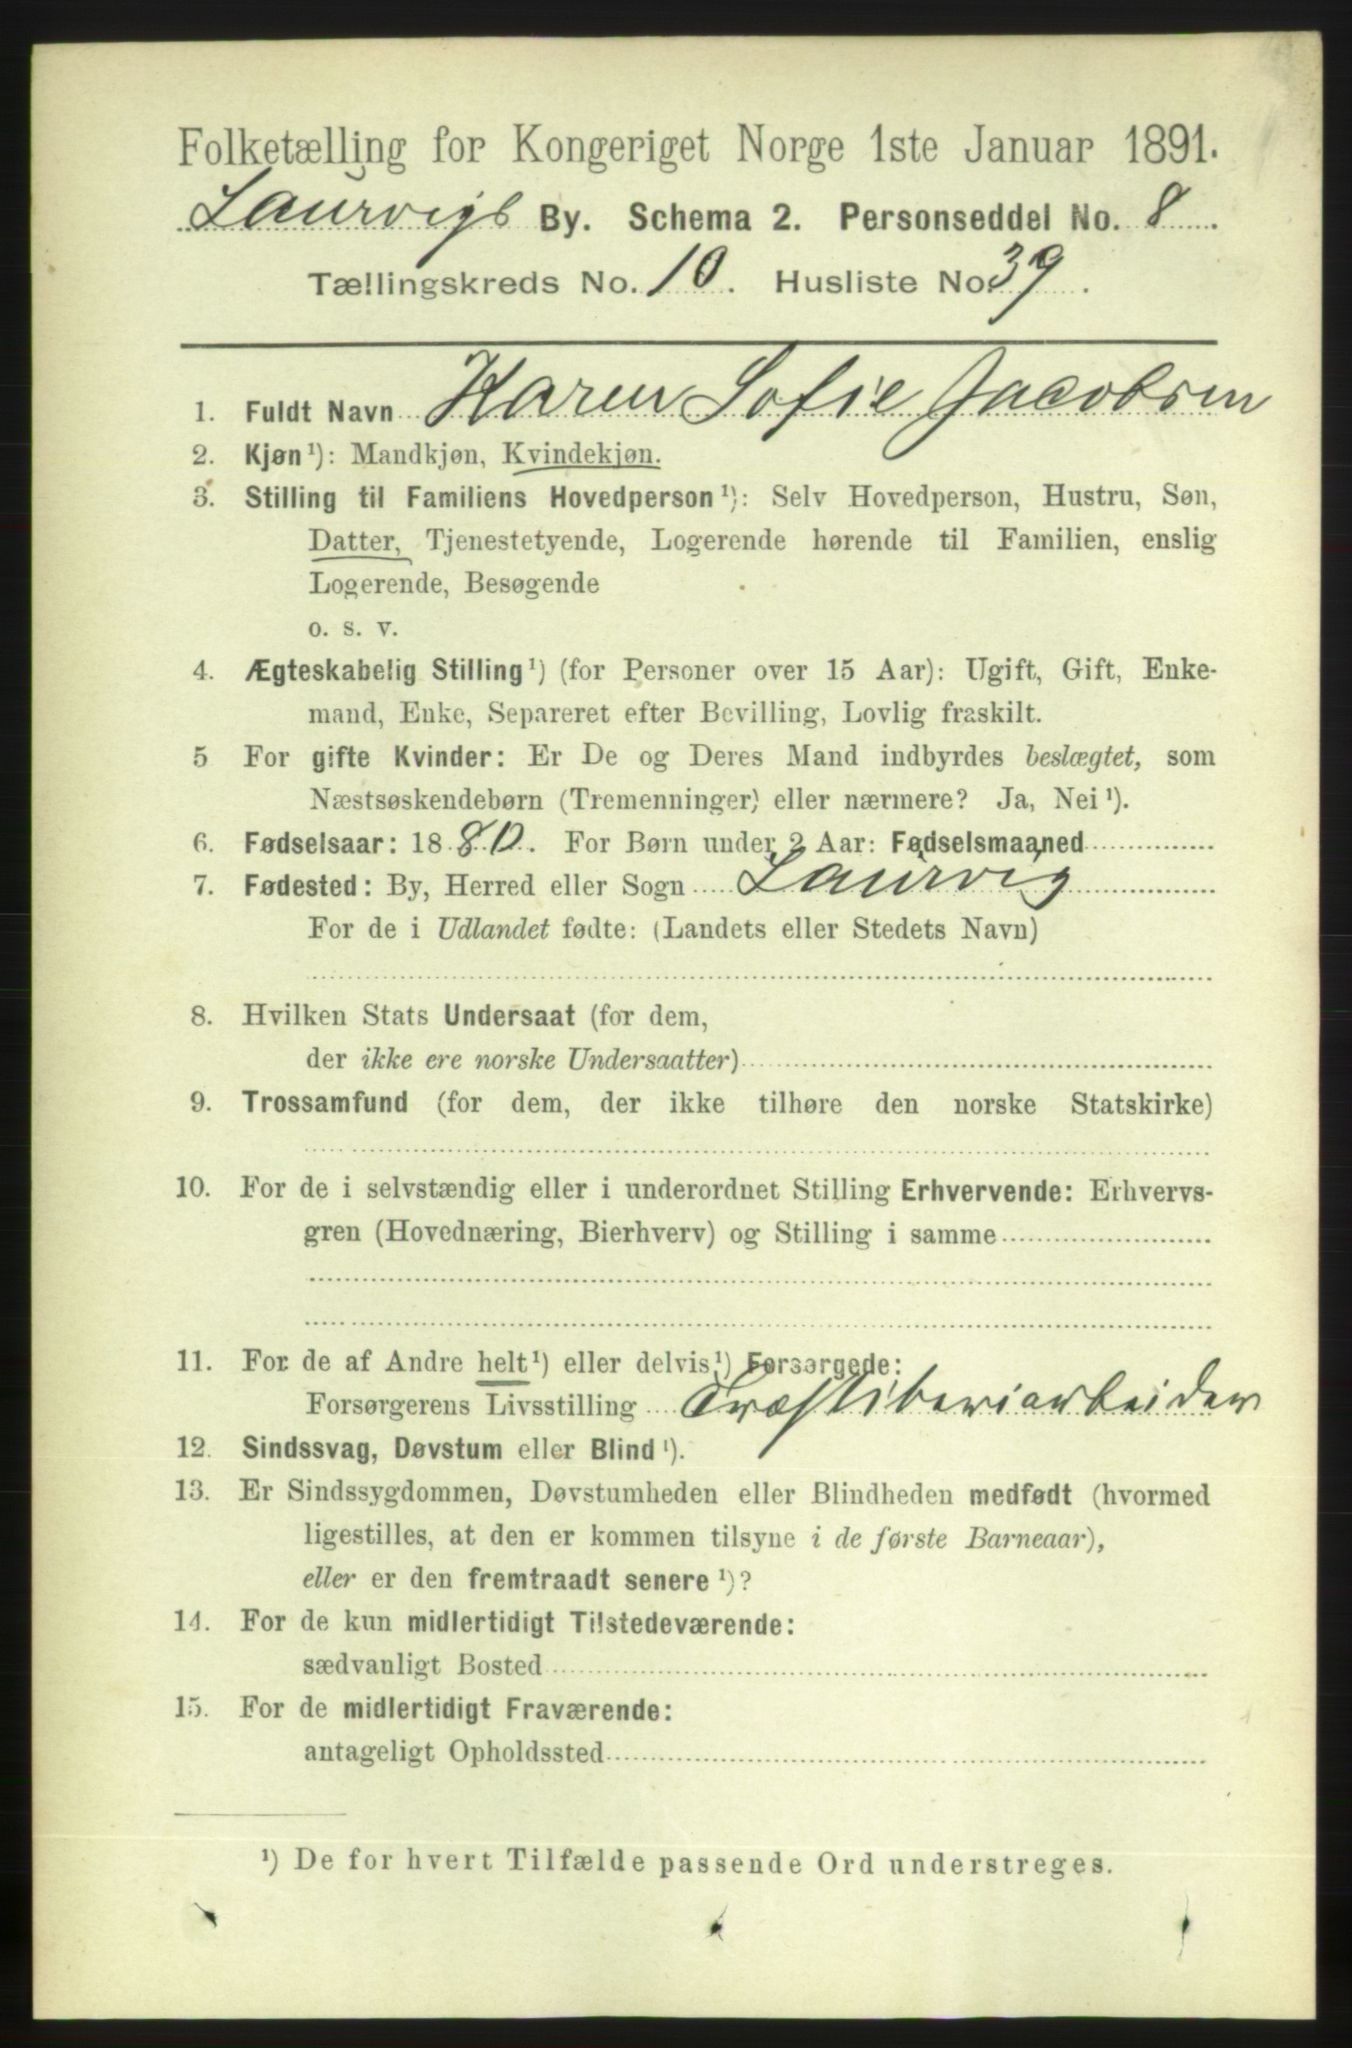 Folketælling for Kongeriget Norge 1ste Januar 1891.
Laurvigs By. Schema 2. Personseddel No. 8.
Tællingskreds No. 10. Husliste No. 39.
1. Fuldt Navn Karen Sofie Jacobsen
2. Kjøn¹): Mandkjøn, Kvindekjøn.
3. Stilling til Familiens Hovedperson¹): Selv Hovedperson, Hustru, Søn,
Datter, Tjenestetyende, Logerende hørende til Familien, enslig
Logerende, Besøgende
o. s. v.
4. Ægteskabelig Stilling¹) (for Personer over 15 Aar): Ugift, Gift, Enke-
mand, Enke, Separeret efter Bevilling, Lovlig fraskilt.
5 For gifte Kvinder: Er De og Deres Mand indbyrdes beslægtet, som
Næstsøskendebørn (Tremenninger) eller nærmere? Ja, Nei¹).
6. Fødselsaar: 1880. For Børn under 2 Aar: Fødselsmaaned
7. Fødested: By, Herred eller Sogn Laurvig
For de i Udlandet fødte: (Landets eller Stedets Navn)
8. Hvilken Stats Undersaat (for dem,
der ikke ere norske Undersaatter)
9. Trossamfund (for dem, der ikke tilhøre den norske Statskirke)
10. For de i selvstændig eller i underordnet Stilling Erhvervende: Erhvervs-
gren (Hovednæring, Bierhverv) og Stilling i samme
11. For de af Andre helt¹) eller delvis¹) Forsørgede:
Forsørgerens Livsstilling Træsliberiarbeider
12. Sindssvag, Døvstum eller Blind¹).
13. Er Sindssygdommen, Døvstumheden eller Blindheden medfødt (hvormed
ligestilles, at den er kommen tilsyne i de første Barneaar),
eller er den fremtraadt senere¹)?
14. For de kun midlertidigt Tilstedeværende:
sædvanligt Bosted
15. For de midlertidigt Fraværende:
antageligt Opholdssted
¹) De for hvert Tilfælde passende Ord understreges.